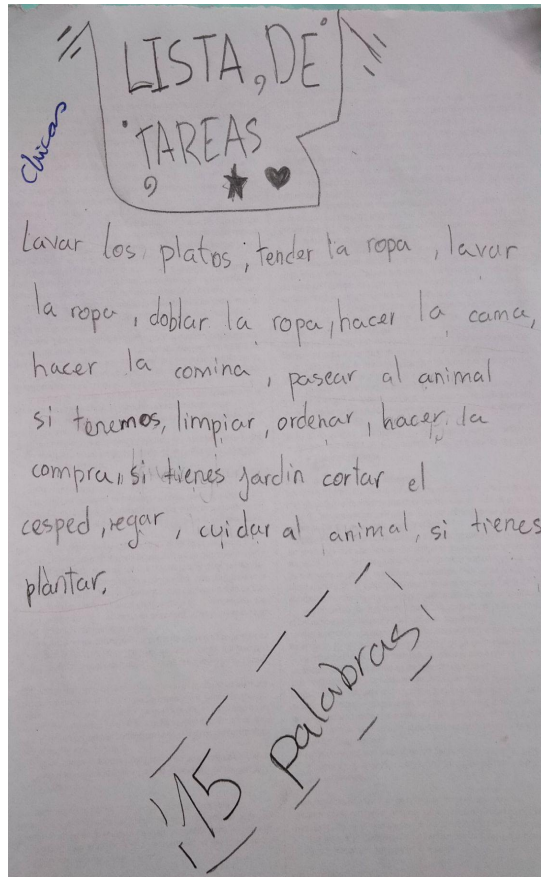 LISTA, DE
TAREAS
Chicas
Lavar los platos, tender la ropa, lavar
la ropa, doblar la ropa, hacer la cama,
hacer la comina, pasear al animal
si tenemos, limpiar, ordenar, hacer la
compra, si tienes jardin cortar el
cesped, regar, cuidar al animal, si tienes
plantar.
15 palabras